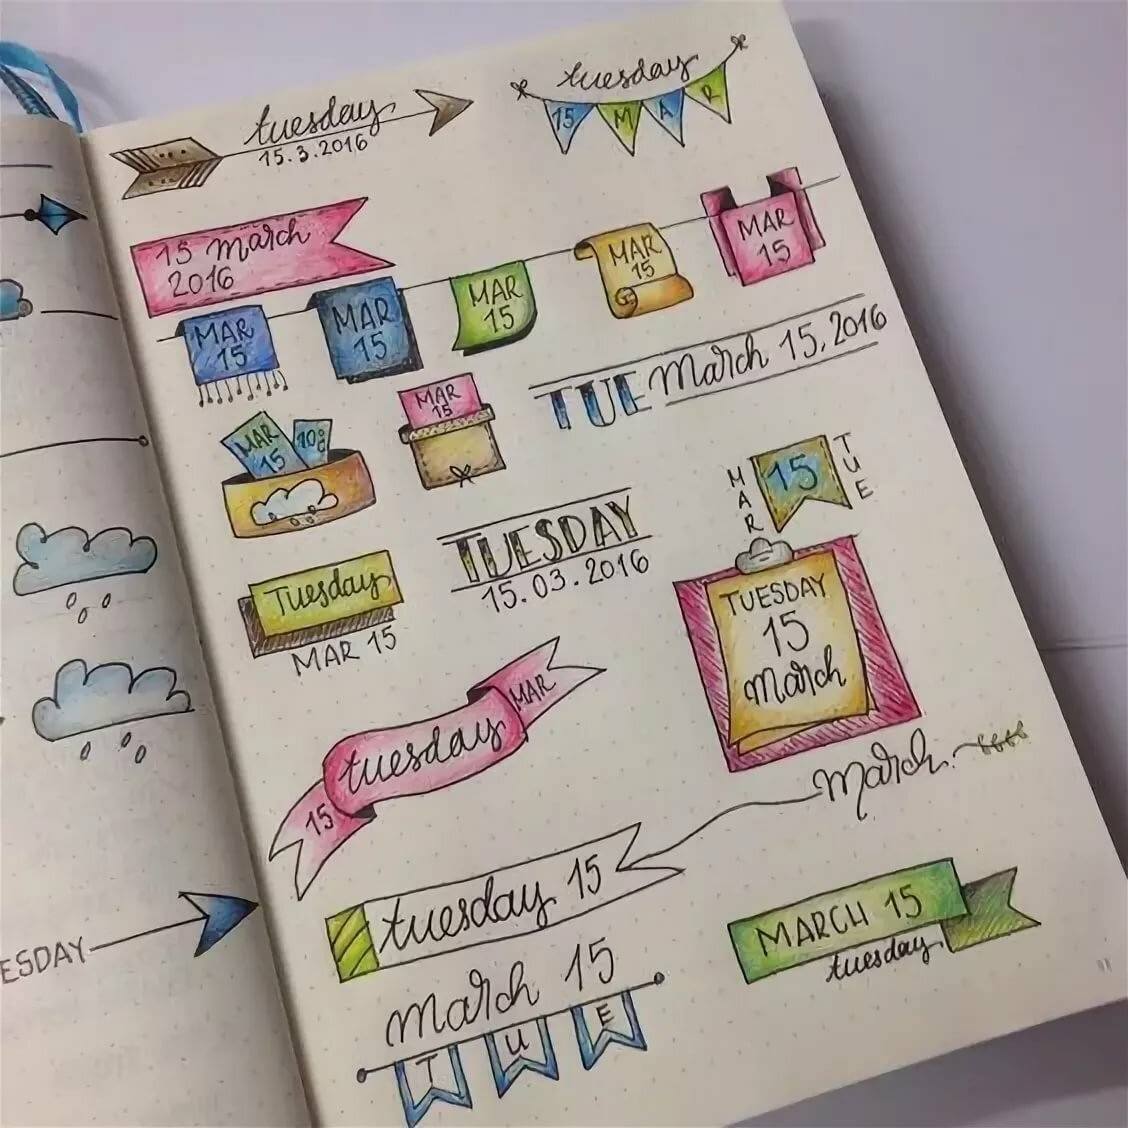 tuesday
15.3.2016
tuesday
15 MAR
15 March
2016
MAR
15
MAR
15
MAR
15
MAR
15
MAR
15
MAR
15
10°C
MAR
15
TUE March 15, 2016
MAR
15
TUE
TUESDAY
15.03.2016
Tuesday
MAR 15
TUESDAY
15
March
15 tuesday MAR
March
tuesday 15
MARCH 15
tuesday
March 15
TUE
ESDAY